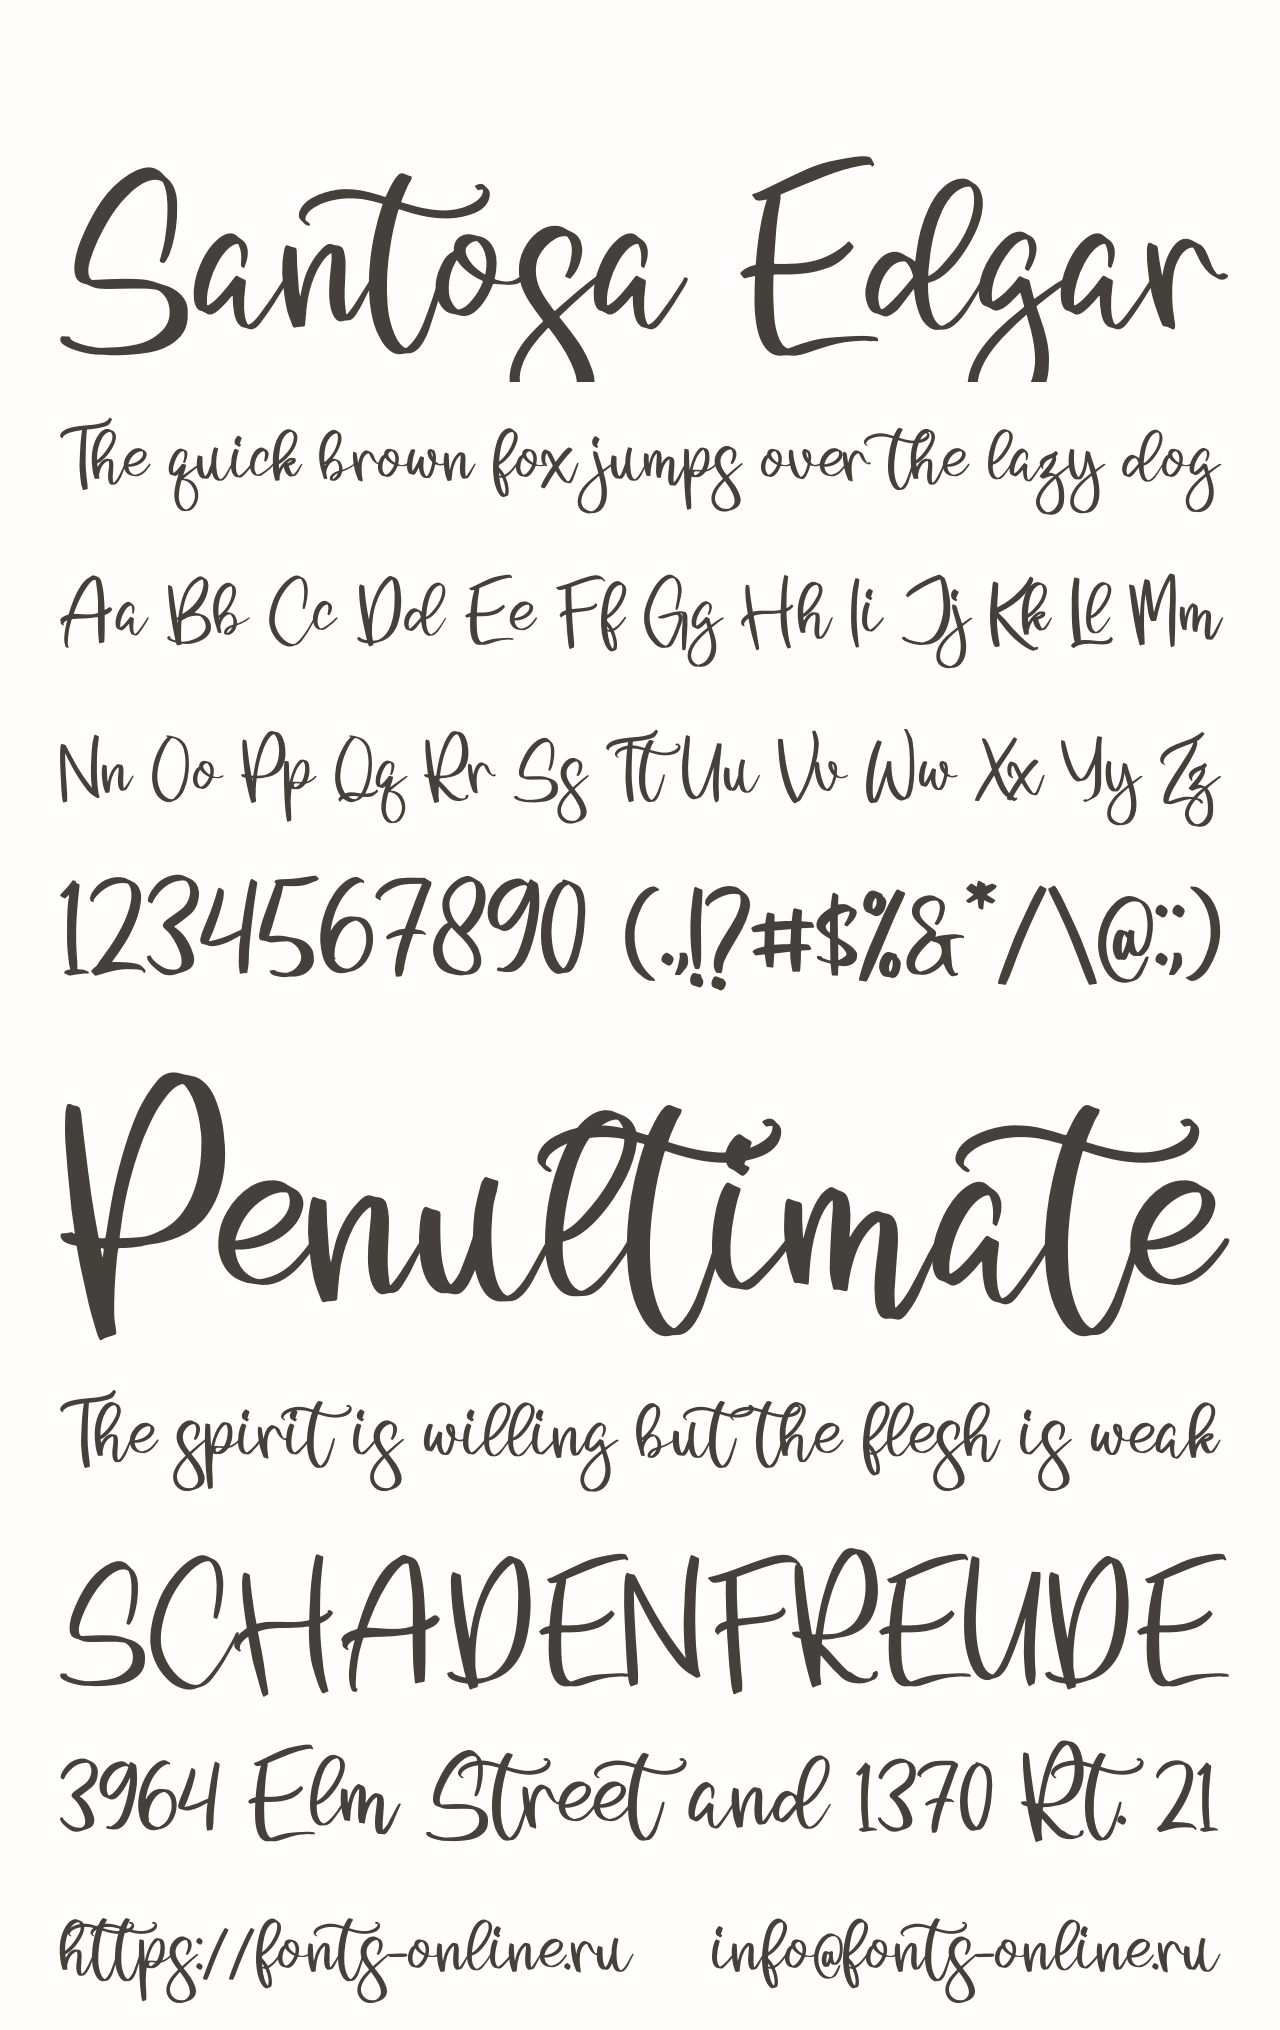 Santosa Edgar
The quick brown fox jumps over the lazy dog
Aa Bb Cc Dd Ee Ff Gg Hh Ii Jj Kk Ll Mm
Nn Oo Pp Qq Rr Ss Tt Uu Vv Ww Xx Yy Zz
1234567890 (.,!?#$%&*/\@:;)
Penultimate
The spirit is willing but the flesh is weak
SCHADENFREUDE
3964 Elm Street and 1370 Rt. 21
https://fonts-online.ru info@fonts-online.ru